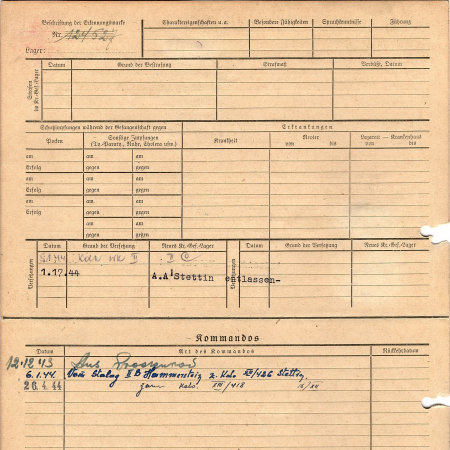 Beschriftung der Erkennungsmarke
Nr.
Lager:
Charaktereigenschaften u.a.
Besondere Fähigkeiten
Sprachkenntnisse
Führung
Strafen im Kr.-Gef.-Lager
Datum
Grund der Bestrafung
Strafmaß
Verbüßt, Datum
Schutzimpfungen während der Gefangenschaft gegen
Erkrankungen
Pocken
Sonstige Impfungen
(Ty.-Paraty., Ruhr, Cholera usw.)
Krankheit
Revier
von bis
Lazarett — Krankenhaus
von bis
am am am
Erfolg gegen gegen
am am am
Erfolg gegen gegen
am am am
Erfolg gegen gegen
am am
gegen gegen
Versetzungen
Datum
Grund der Versetzung
Neues Kr.-Gef.-Lager
Datum
Grund der Versetzung
Neues Kr.-Gef.-Lager
II C
1.17.44 A.A Stettin entlassen-
Kommandos
Datum
Art des Kommandos
Rückkehrdatum
12.12.43 Aus
6.1.44. Vom Stalag II B Hammerstein z. Kdo
26.4.44 zum Kdo. VIII/418